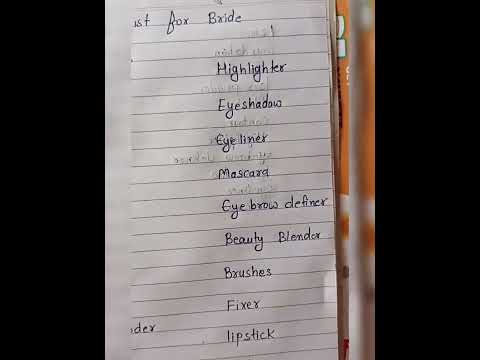 ust for Bride
Highlighter
Eyeshadow
Eyeliner
Mascara
Eyebrow definer
Beauty Blender
Brushes
Fixer
der
lipstick